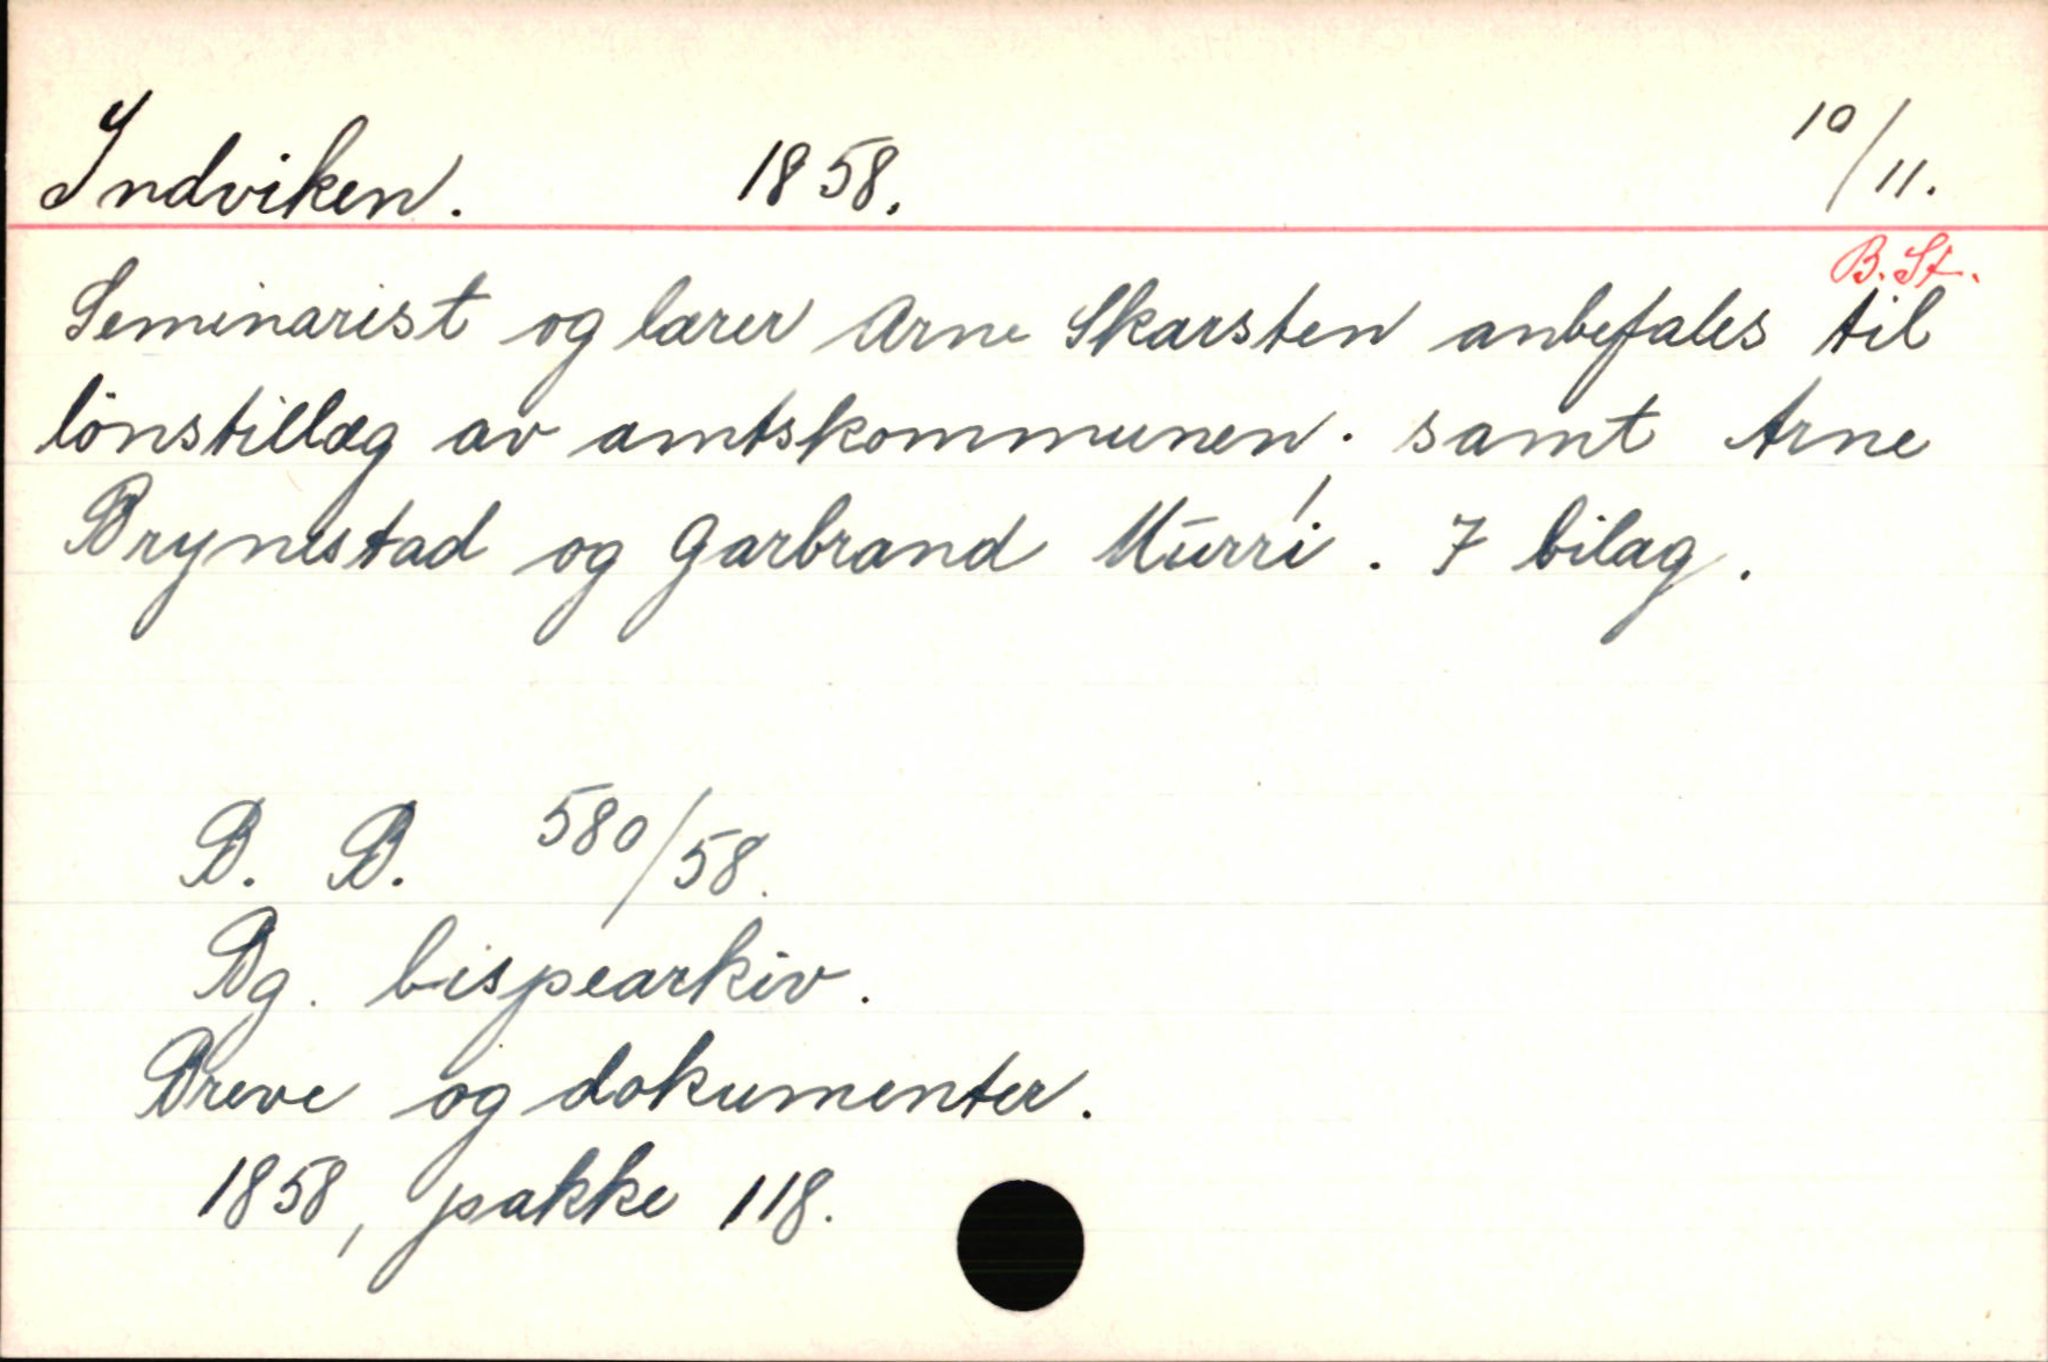 Indviken. 1858. 10/11.
B. St.
Seminarist og lærer Arne Skarsten anbefales til
lönstillæg av amtskommunen; samt Arne
Brynestad og Garbrand Murri. 7 bilag.
B. B. 580/58.
Bg. bispearkiv.
Breve og dokumenter.
1858, pakke 118.